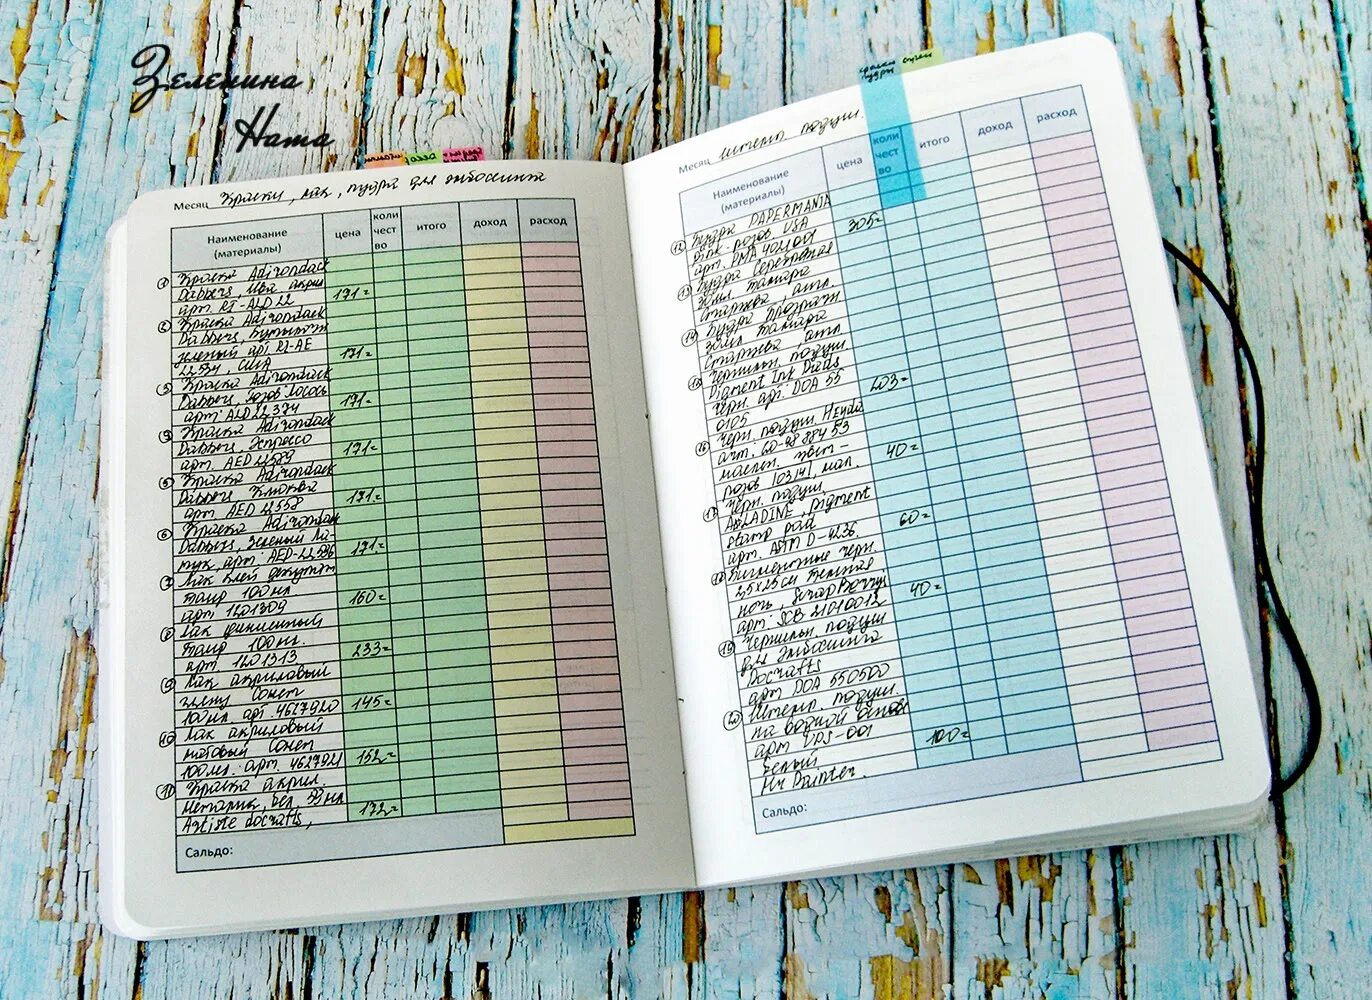 Зеленина
Ната
Месяц Краски, лак, пудра для эмбоссинга
Наименование (материалы) цена количество итого доход расход
1 Краска Adirondack
Dabbers, Ива акрил
арт. RT-ALD 22 171=
2 Краска Adirondack
Dabbers, Бутылочн
зеленый арт. 22-AE
22534, США 171=
3 Краска Adirondack
Dabbers, Розов. Лосось
арт: ALD 22 374 171=
4 Краска Adirondack
Dabbers, Эспрессо
арт. AED 22589 171=
5 Краска Adirondack
Dabbers Клюква
арт AED 22558 171=
6 Краска Adirondack
Dabbers, Зеленый Ла-
тук, арт: AED-22596 171=
7 Лак клей декупаж
Таир 100 мл
арт 1201309 160=
8 Лак финишный
Таир 100 мл.
арт 1201313 233=
9 Лак акриловый
глянц Сонет
100 мл. арт. 4627920 145=
10 Лак акриловый
матовый Сонет
100 мл. арт. 4627921 152=
11 Краска акрил.
металлик, бел, 59 мл
Artiste docrafts, 172=
Сальдо:
Месяц Штемп. подуш.
Наименование (материалы) цена количество итого доход расход
12 Пудра PAPERMANIA
Pink розов USA
арт. PMA 4021001 305=
13 Пудра Серебряная
Зона Тамара
14 Пудра Прозрачн
Зона Тамара
15 Чернильн. подуш
Pigment Ink Pads
черн. арт. DOA 55
0105 203=
16 Черн. подуш. Heyda
арт. 20-98 884 53
розов 103/41 мал. 40=
17 Черн. подуш.
ABLADINE, pigment
stamp pad
арт. ASTM D-4236. 60=
18 Пигментные черн.
2,5x2,5 см темная
ночь, ScrapBerrys
арт: SCB 21010012 40=
19 Чернильн. подуш
для эмбоссинга
Docrafts
арт DOA 550500
20 Штемп. подуш.
на водной основе
арт VPS-001
белый 100=
Mr Painter.
Сальдо: